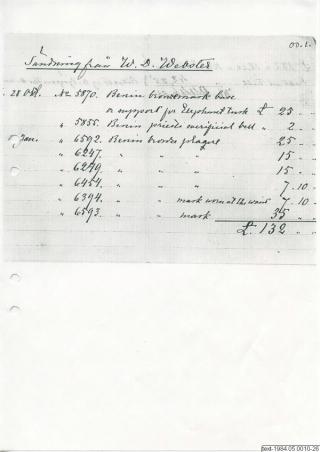 Sändning från W. D. Webster
28 Okt. No 5870. Benin bronsmask base
or support for Elephant tusk £ 25 " "
" 5855. Benin priests sacrificial bell " 2 " "
5 Jan. " 6592. Benin bronze plaque 25 " "
" 6247. " " " 15 " "
" 6279. " " " 15 " "
" 6454. " " " 7 . 10 "
" 6394. " " mask worn at the waist 7 . 10 "
" 6593. " " mask 35 " "
£. 132 " "
text-1984.05.0010-26